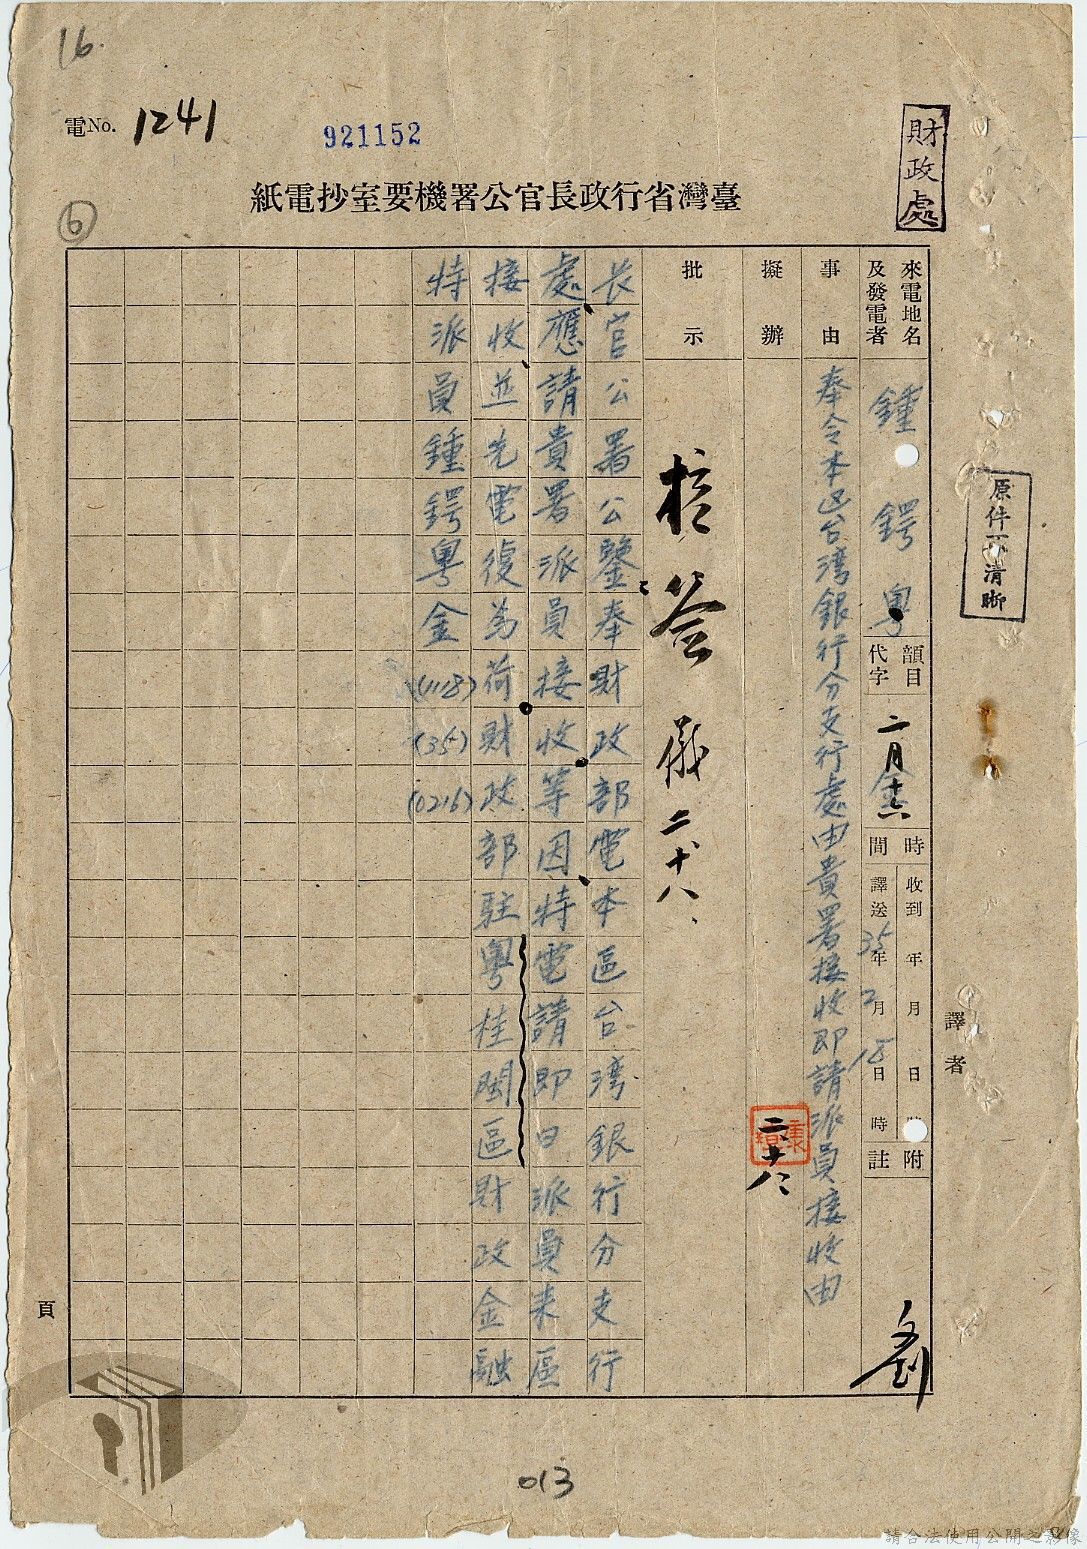 16.
電No. 1241
921152
財政處
臺灣省行政長官公署機要室抄電紙
6
來電地名及發電者
鍾鍔 粵
韻目代字
二月十六
時間
收到 年 月 日 時
譯送 35年2月18日 時
附註
劉
事由
奉令本區台湾銀行分支行處由貴署接收即請派員接收由
擬辦
二十八
批示
核签 儀 二十八、
長官公署公鑒奉財政部電本區台湾銀行分支行
處應請貴署派員接收等因特電請即日派員来區
接收並先電復為荷財政部駐粵桂閩區財政金融
特派員鍾鍔粵金(1118)(35)(0216)
原件不清晰
譯者
頁
013
請合法使用公開之影像